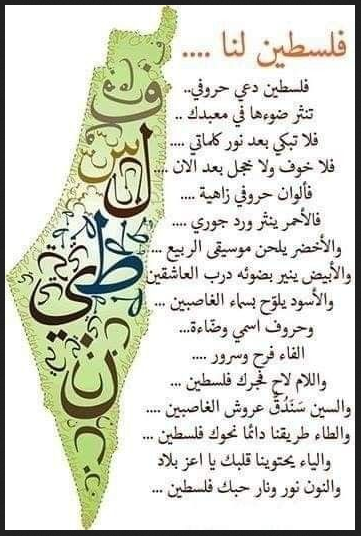 فلسطين لنا ....
فلسطين دعي حروفي..
تنثر ضوءها في معبدك ..
فلا تبكي بعد نور كلماتي ....
فلا خوف ولا خجل بعد الان ....
فألوان حروفي زاهية ....
فالأحمر ينثر ورد جوري ....
والأخضر يلحن موسيقى الربيع ...
والأبيض ينير بضوئه درب العاشقين
والأسود يلوّح بسماء الغاصبين ...
وحروف اسمي وضّاءة...
الفاء فرح وسرور ....
واللام لاح فجرك فلسطين ...
والسين سَنَدُقُّ عروش الغاصبين ....
والطاء طريقنا دائمًا نحوك فلسطين ...
والياء يحتوينا قلبك يا اعز بلاد
والنون نور ونار حبك فلسطين ...
فلسطين